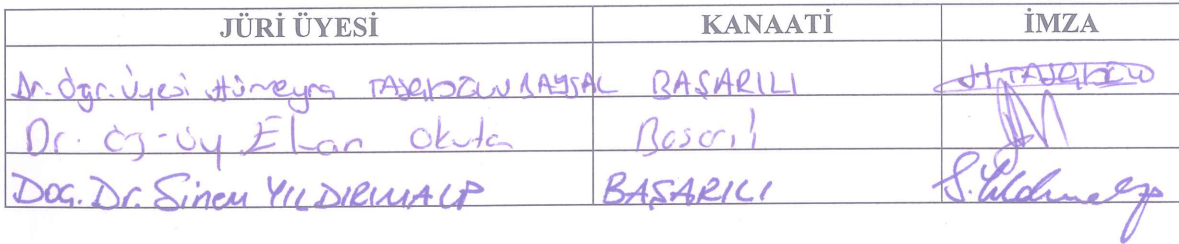 JÜRİ ÜYESİ KANAATİ İMZA
Dr. Öğr. Üyesi Hümeyra TAŞÇIOĞLU BAYSAL BAŞARILI H.TAŞÇIOĞLU
Dr. Öğ. Üy Okutan Basarılı
Doç. Dr. Sinem YILDIRIMALP BAŞARILI S. Yıldırımalp